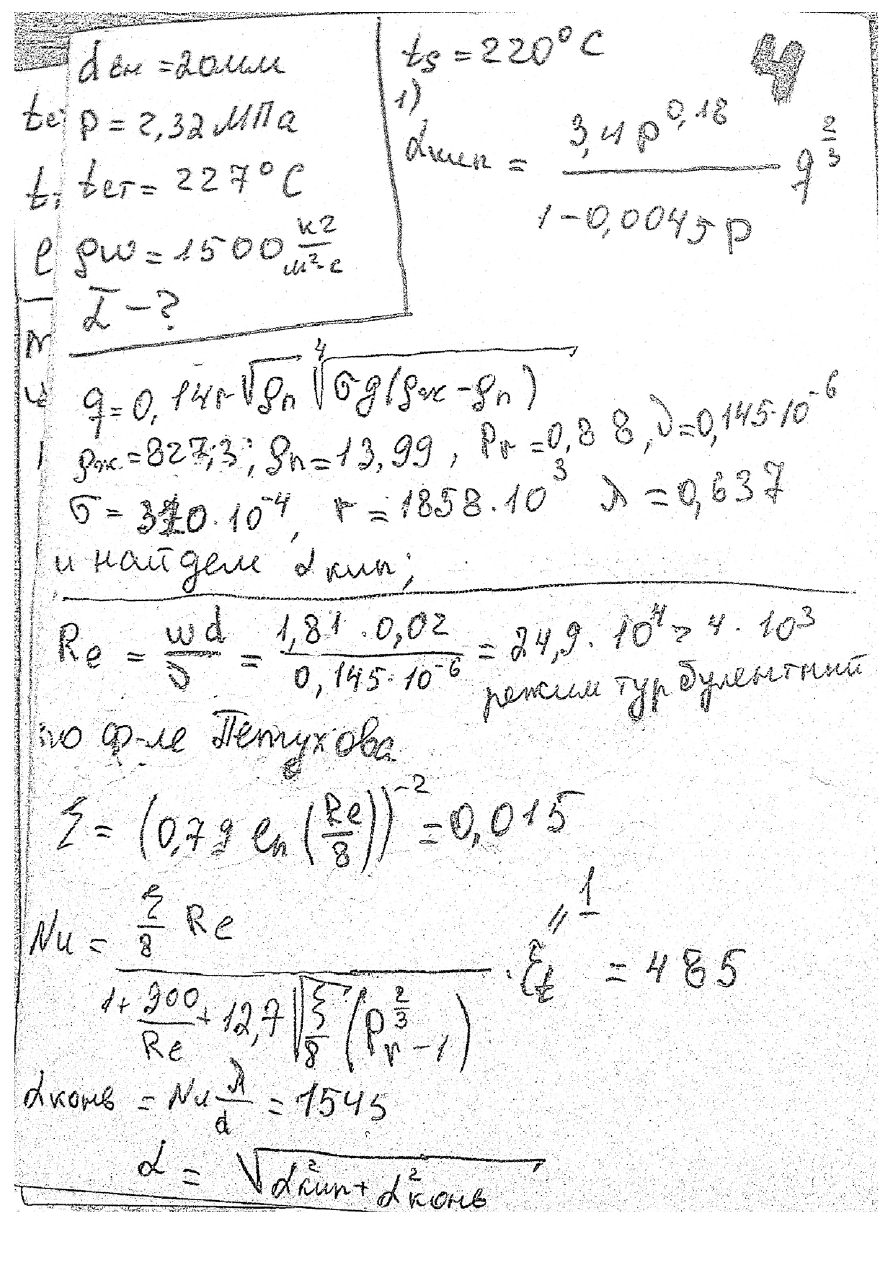 dвн = 20мм
P = 2,32 МПа
tст = 227°C
ρw = 1500 кг/м²·с
α̅ - ?
ts = 220°C
4
1)
αкип = 3,4 p^0,18 / (1-0,0045 p) q^(2/3)
q = 0,14 r √ρп ⁴√(σg(ρж - ρп))
ρж = 827,3; ρп = 13,99, Pr = 0,88, ν = 0,145·10^-6
σ = 310·10^-4, r = 1858·10^3 λ = 0,637
и найдем αкип;
Re = wd/ν = 1,81·0,02 / 0,145·10^-6 = 24,9·10^4 > 4·10^3
режим турбулентный
по ф-ле Петухова
ξ = (0,79 ln(Re/8))^-2 = 0,015
Nu = (ξ/8 Re) / (1 + 900/Re + 12,7 √(ξ/8) (Pr^(2/3) - 1)) · ξt = 485
" 1
αконв = Nu λ/d = 1545
α = √(α²кип + α²конв)